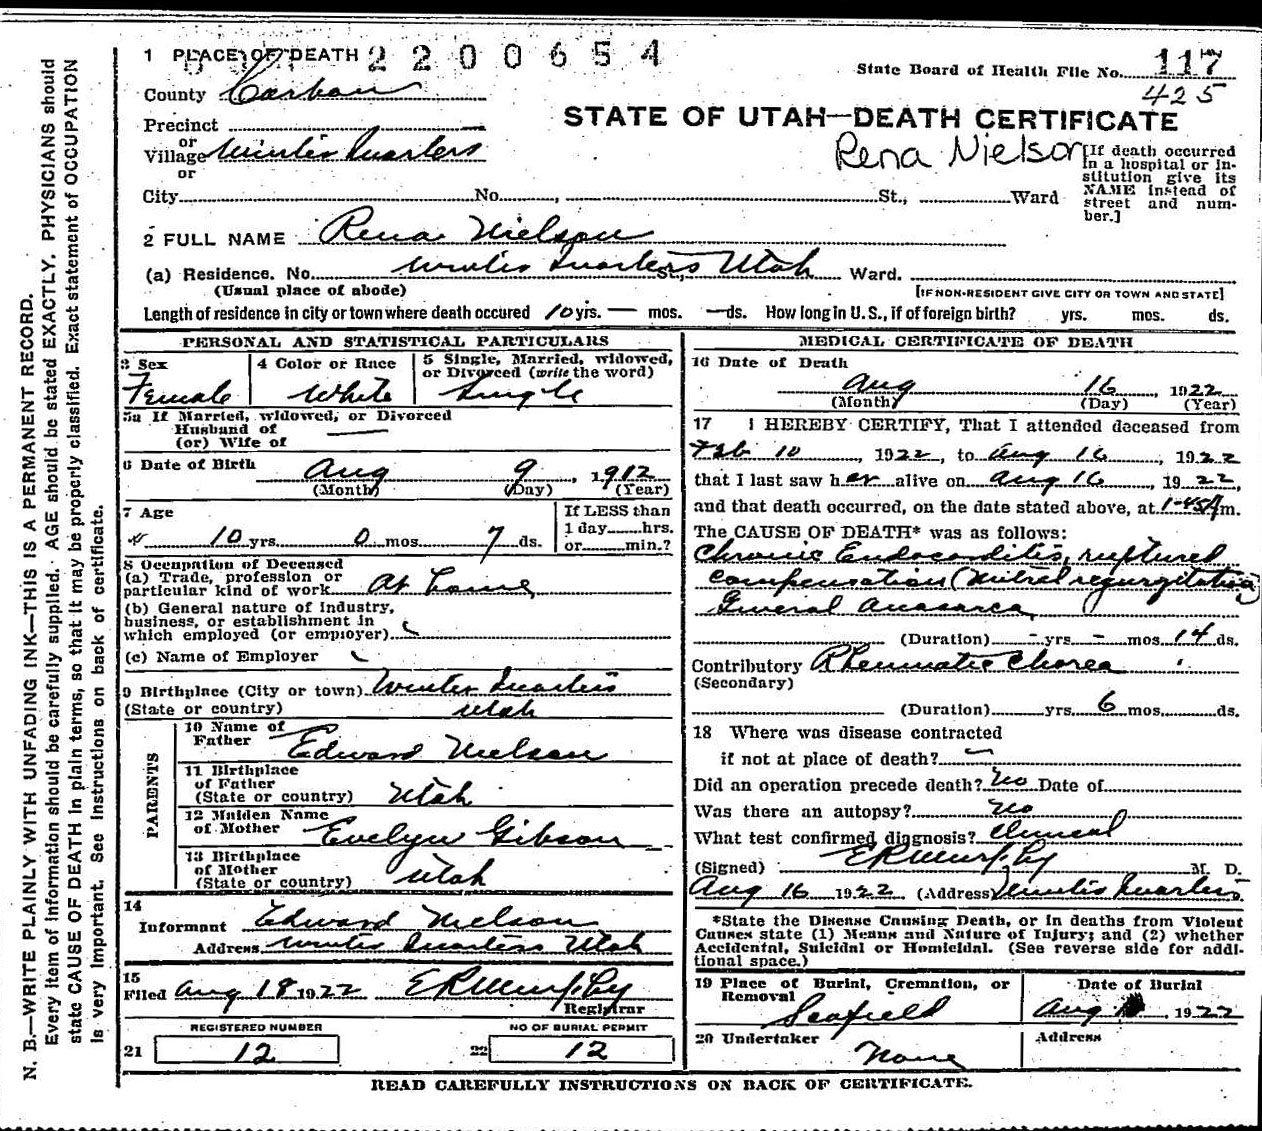 1 PLACE OF DEATH 2200654
State Board of Health File No. 117
425
County Carbon
STATE OF UTAH—DEATH CERTIFICATE
Precinct
or
Village Winter Quarters
or
Rena Nielson
[If death occurred in a hospital or institution give its NAME instead of street and number.]
City No. , St., Ward
2 FULL NAME Rena Nielson
(a) Residence. No. Winter Quarters St., Utah Ward.
(Usual place of abode)
[IF NON-RESIDENT GIVE CITY OR TOWN AND STATE]
Length of residence in city or town where death occured 10 yrs. — mos. — ds. How long in U. S., if of foreign birth? yrs. mos. ds.
PERSONAL AND STATISTICAL PARTICULARS
3 Sex
Female
4 Color or Race
White
5 Single, Married, widowed, or Divorced (write the word)
Single
5a If Married, widowed, or Divorced
Husband of
(or) Wife of
6 Date of Birth Aug 9, 1912
(Month) (Day) (Year)
7 Age
10 yrs. 0 mos. 7 ds.
If LESS than
1 day hrs.
or min.?
8 Occupation of Deceased
(a) Trade, profession or
particular kind of work At home
(b) General nature of Industry,
business, or establishment in
which employed (or employer)
(c) Name of Employer
9 Birthplace (City or town) Winter Quarters
(State or country) Utah
PARENTS
10 Name of
Father Edward Nielson
11 Birthplace
of Father
(State or country) Utah
12 Maiden Name
of Mother Evelyn Gibson
13 Birthplace
of Mother
(State or country) Utah
14
Informant Edward Nielson
Address Winter Quarters Utah
15
Filed Aug 18 1922 E R Murphy
Registrar
REGISTERED NUMBER
21 12
NO OF BURIAL PERMIT
22 12
MEDICAL CERTIFICATE OF DEATH
16 Date of Death
Aug 16, 1922
(Month) (Day) (Year)
17 I HEREBY CERTIFY, That I attended deceased from
Feb 10, 1922, to Aug 16, 1922
that I last saw her alive on Aug 16, 1922,
and that death occurred, on the date stated above, at 1-45 A m.
The CAUSE OF DEATH* was as follows:
Chronic Endocarditis, ruptured
compensation (Mitral regurgitation)
General anasarca
(Duration) - yrs. - mos. 14 ds.
Contributory Rheumatic Chorea
(Secondary)
(Duration) yrs. 6 mos. ds.
18 Where was disease contracted
if not at place of death? —
Did an operation precede death? No Date of
Was there an autopsy? No
What test confirmed diagnosis? Clinical
(Signed) E R Murphy M. D.
Aug 16, 1922 (Address) Winter Quarters
*State the Disease Causing Death, or in deaths from Violent
Causes state (1) Means and Nature of Injury; and (2) whether
Accidental, Suicidal or Homicidal. (See reverse side for addi-
tional space.)
19 Place of Burial, Cremation, or
Removal
Scofield
Date of Burial
Aug , 1922
20 Undertaker
None
Address
READ CAREFULLY INSTRUCTIONS ON BACK OF CERTIFICATE.
N. B.—WRITE PLAINLY WITH UNFADING INK—THIS IS A PERMANENT RECORD.
Every item of information should be carefully supplied. AGE should be stated EXACTLY. PHYSICIANS should
state CAUSE OF DEATH in plain terms, so that it may be properly classified. Exact statement of OCCUPATION
is very important. See Instructions on back of certificate.